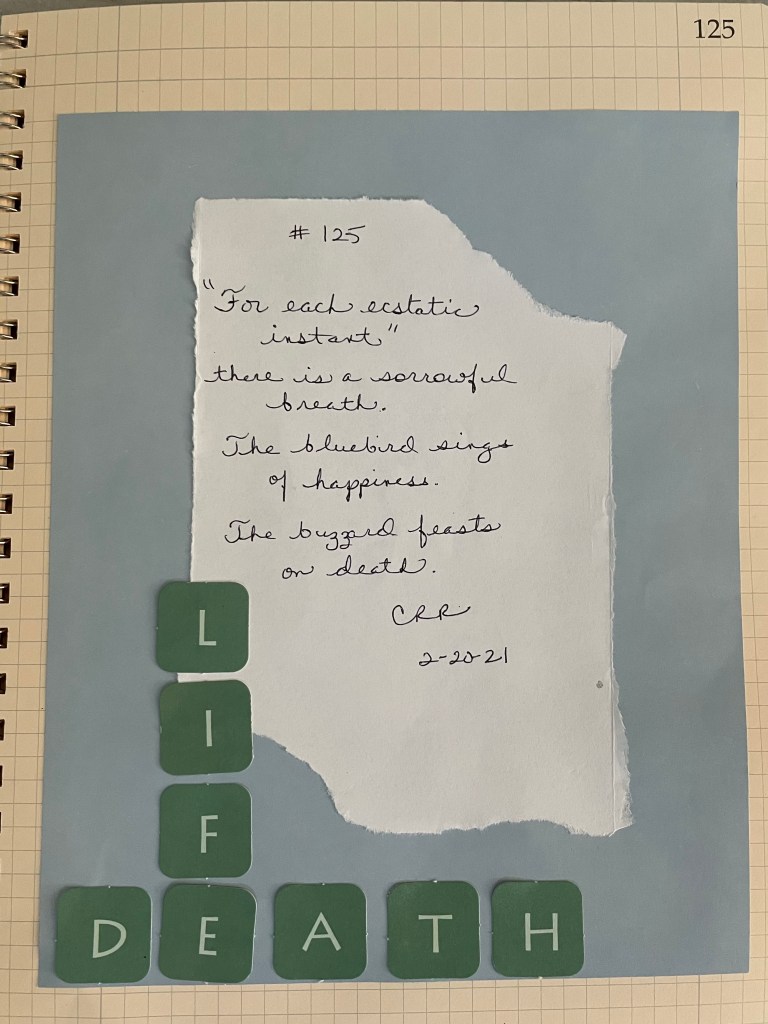 125
# 125
"For each ecstatic
instant"
there is a sorrowful
breath.
The bluebird sings
of happiness.
The buzzard feasts
on death.
CRR
2-20-21
L
I
F
DEATH